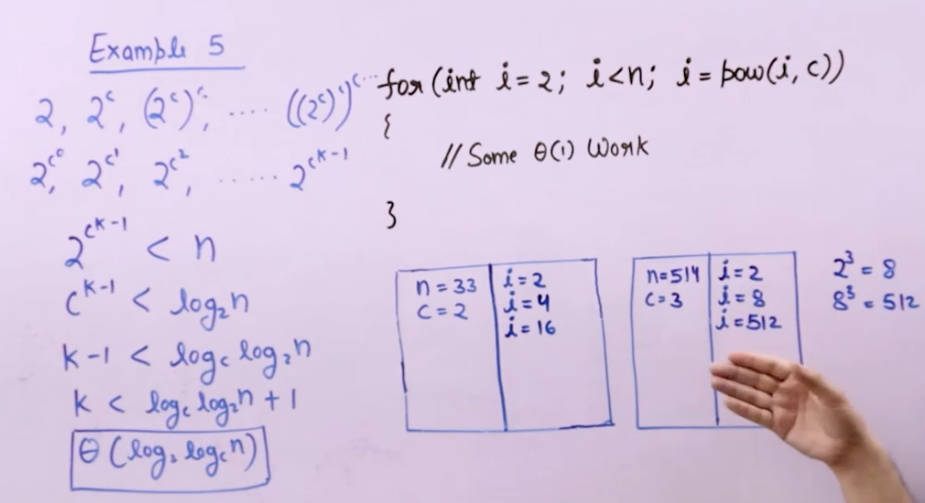 Example 5
2, 2^c, (2^c)^c, .... ((2^c)^c)^c...
2^c^0, 2^c^1, 2^c^2, ...... 2^c^k-1
2^c^k-1 < n
c^k-1 < log₂n
k-1 < log_c log₂n
k < log_c log₂n + 1
θ (log₂ log_c n)
for (int i=2; i<n; i=pow(i, c))
{
// Some θ(1) Work
}
n=33
c=2
i=2
i=4
i=16
n=514
c=3
i=2
i=8
i=512
2³ = 8
8³ = 512